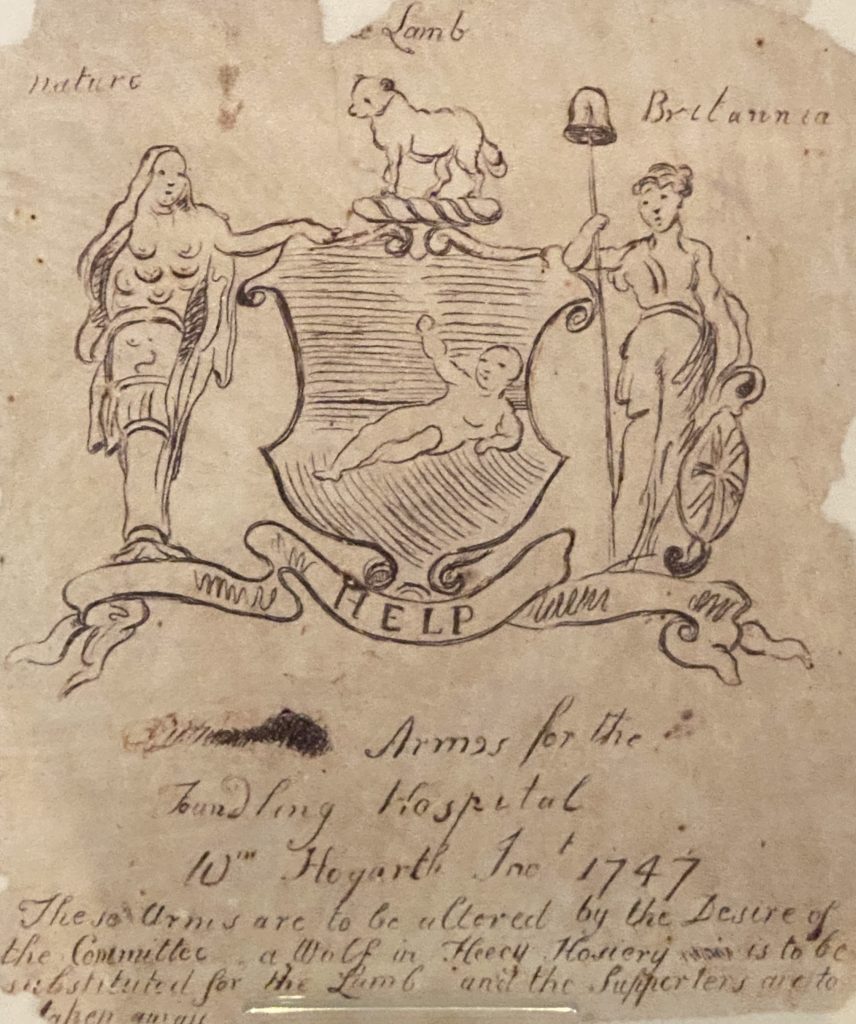 Lamb
nature
Britannia
HELP
Armes for the
Foundling Hospital
Wm Hogarth Inv.t 1747
These Arms are to be altered by the Desire of
the Committee a Wolf in Fleecy Hosiery is to be
substituted for the Lamb and the Supporters are to
taken away